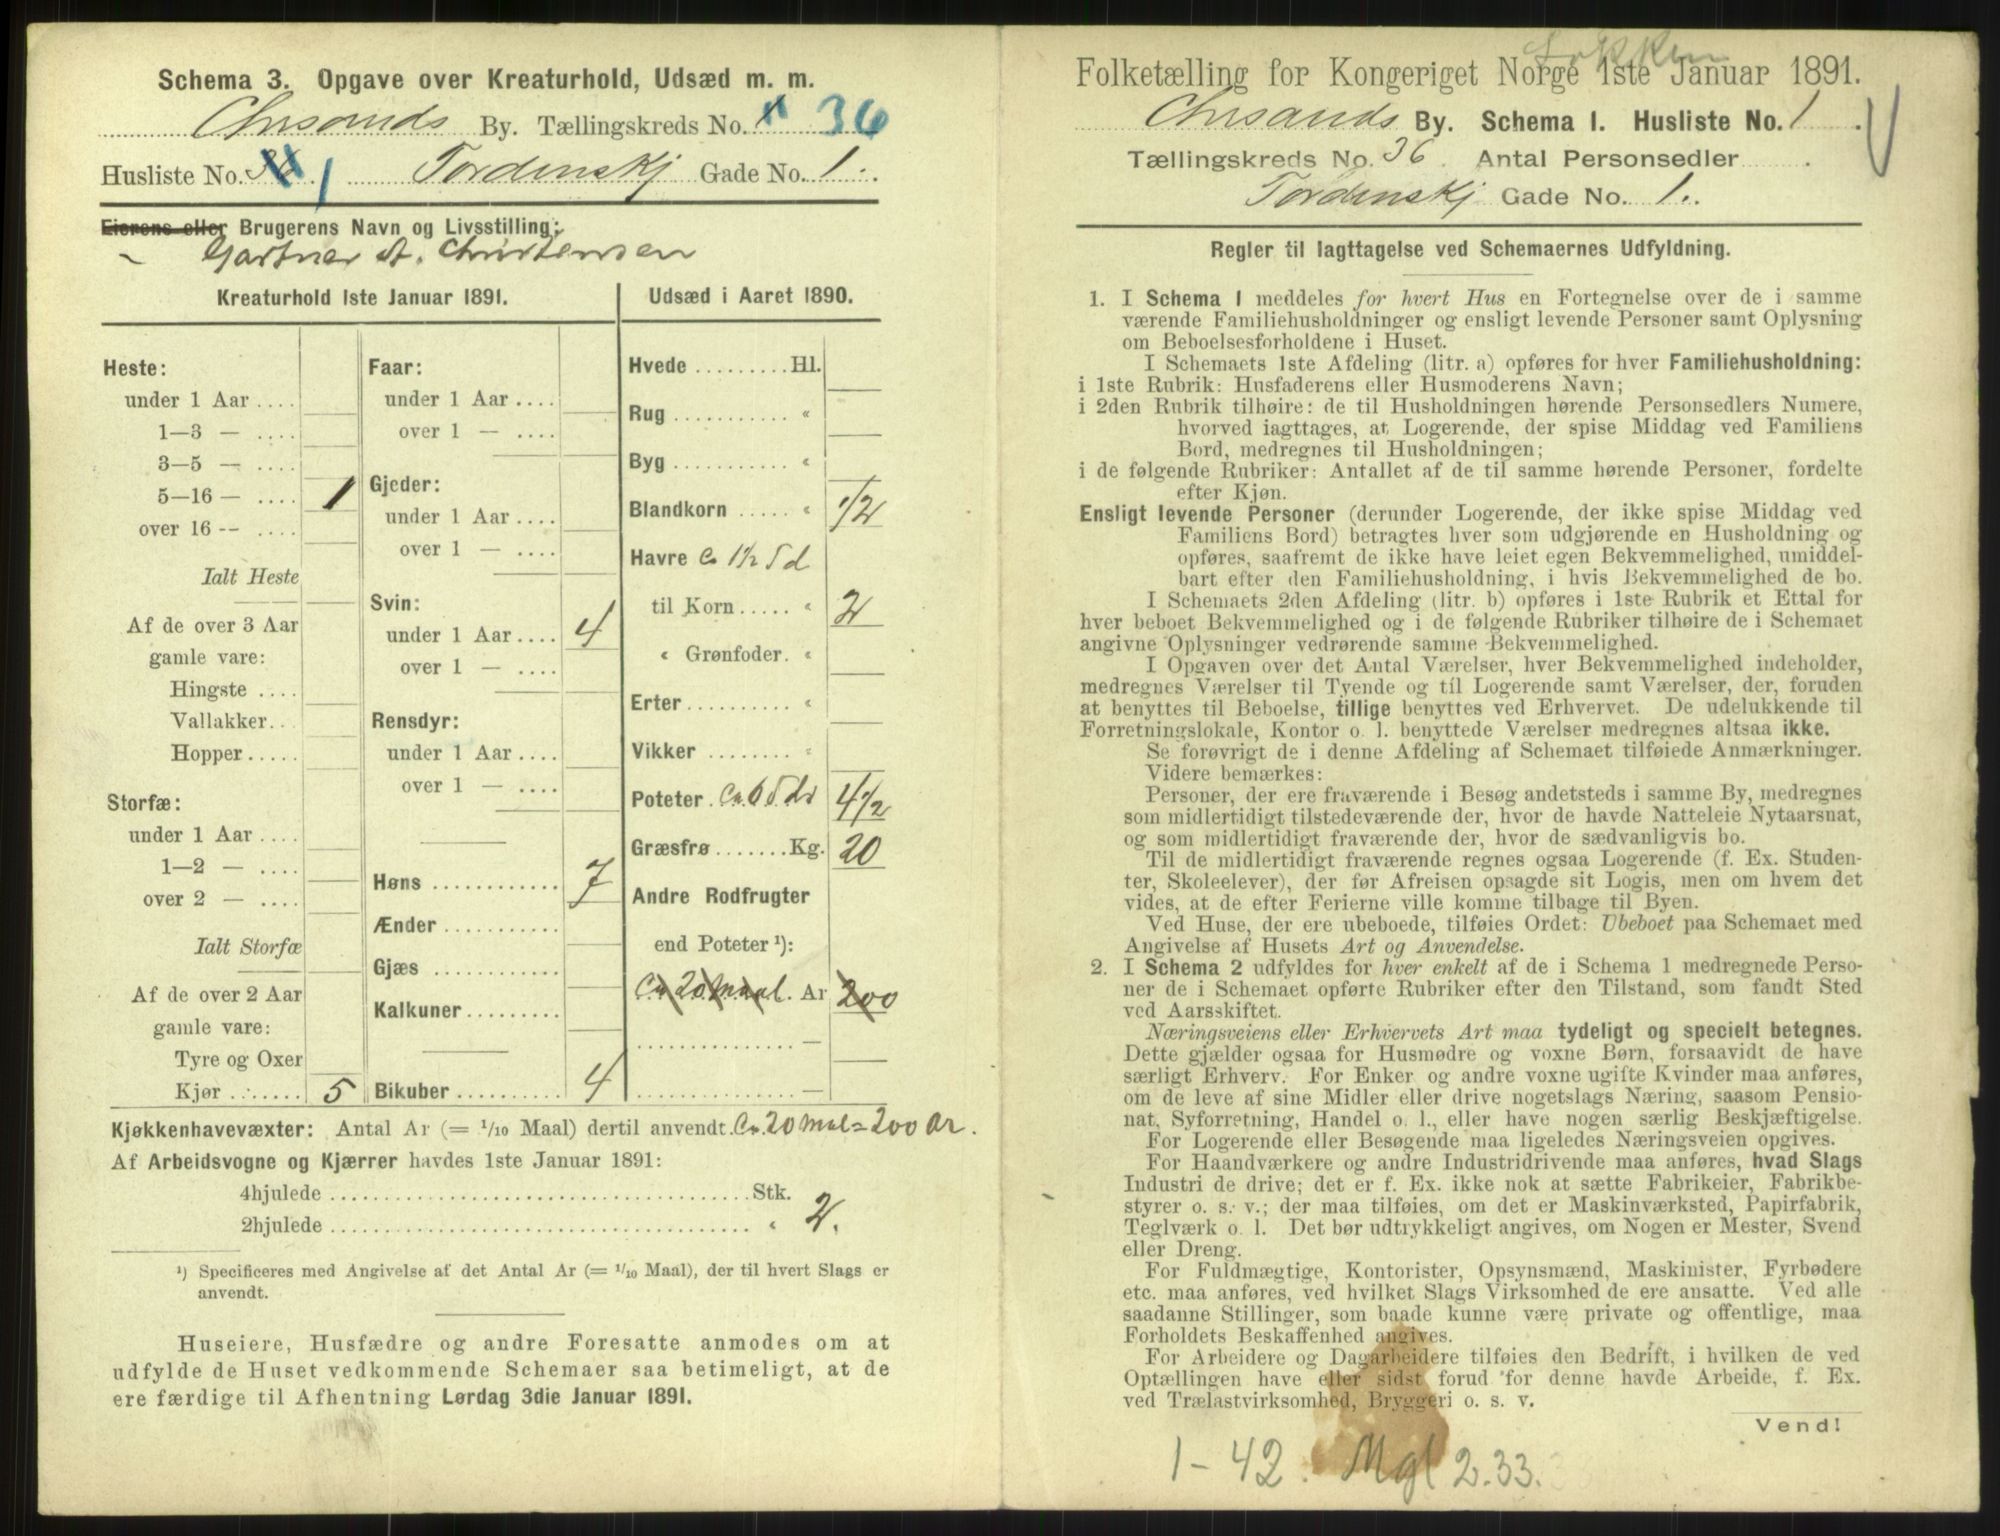 Schema 3. Opgave over Kreaturhold, Udsæd m. m.
Chrsands By. Tællingskreds No. 36
Husliste No. 1 Tordenskj Gade No. 1.
Eierens eller Brugerens Navn og Livsstilling:
Gartner A. Christensen
Kreaturhold 1ste Januar 1891.
Heste:
under 1 Aar ....
1—3 — ....
3—5 — ....
5—16 — .... 1
over 16 — ....
Ialt Heste
Af de over 3 Aar
gamle vare:
Hingste ....
Vallakker...
Hopper.....
Storfæ:
under 1 Aar ....
1—2 — ....
over 2 — ....
Ialt Storfæ
Af de over 2 Aar
gamle vare:
Tyre og Oxer
Kjør ...... 5
Faar:
under 1 Aar ....
over 1 — ....
Gjeder:
under 1 Aar ....
over 1 — ....
Svin:
under 1 Aar .... 4
over 1 — ....
Rensdyr:
under 1 Aar ....
over 1 — ....
Høns ............ 7
Ænder ...........
Gjæs ............
Kalkuner.........
Bikuber .......... 4
Udsæd i Aaret 1890.
Hvede .........Hl.
Rug ........... “
Byg ........... “
Blandkorn ..... “ 1/2
Havre Ca 1 1/2 Td
til Korn ..... “ 2
“ Grønfoder. “
Erter.......... “
Vikker ........ “
Poteter. Ca. 6 Tdr 4 1/2
Græsfrø .......Kg. 20
Andre Rodfrugter
end Poteter ¹):
Ca 20 Maal. Ar 200
.............. —
.............. —
Kjøkkenhavevæxter: Antal Ar (= 1/10 Maal) dertil anvendt. Ca. 20 mal = 200 ar.
Af Arbeidsvogne og Kjærrer havdes 1ste Januar 1891:
4hjulede ........................................Stk.
2hjulede ........................................ “ 2.
¹) Specificeres med Angivelse af det Antal Ar (= 1/10 Maal), der til hvert Slags er
anvendt.
Huseiere, Husfædre og andre Foresatte anmodes om at
udfylde de Huset vedkommende Schemaer saa betimeligt, at de
ere færdige til Afhentning Lørdag 3die Januar 1891.
Folketælling for Kongeriget Norge 1ste Januar 1891.
Chrsands By. Schema 1. Husliste No. 1
Tællingskreds No. 36 Antal Personsedler .......
Tordenskj Gade No. 1.
Regler til Iagttagelse ved Schemaernes Udfyldning.
1. I Schema 1 meddeles for hvert Hus en Fortegnelse over de i samme
værende Familiehusholdninger og ensligt levende Personer samt Oplysning
om Beboelsesforholdene i Huset.
I Schemaets 1ste Afdeling (litr. a) opføres for hver Familiehusholdning:
i 1ste Rubrik: Husfaderens eller Husmoderens Navn;
i 2den Rubrik tilhøire: de til Husholdningen hørende Personsedlers Numere,
hvorved iagttages, at Logerende, der spise Middag ved Familiens
Bord, medregnes til Husholdningen;
i de følgende Rubriker: Antallet af de til samme hørende Personer, fordelte
efter Kjøn.
Ensligt levende Personer (derunder Logerende, der ikke spise Middag ved
Familiens Bord) betragtes hver som udgjørende en Husholdning og
opføres, saafremt de ikke have leiet egen Bekvemmelighed, umiddel-
bart efter den Familiehusholdning, i hvis Bekvemmelighed de bo.
I Schemaets 2den Afdeling (litr. b) opføres i 1ste Rubrik et Ettal for
hver beboet Bekvemmelighed og i de følgende Rubriker tilhøire de i Schemaet
angivne Oplysninger vedrørende samme Bekvemmelighed.
I Opgaven over det Antal Værelser, hver Bekvemmelighed indeholder,
medregnes Værelser til Tyende og til Logerende samt Værelser, der, foruden
at benyttes til Beboelse, tillige benyttes ved Erhvervet. De udelukkende til
Forretningslokale, Kontor o. l. benyttede Værelser medregnes altsaa ikke.
Se forøvrigt de i denne Afdeling af Schemaet tilføiede Anmærkninger.
Videre bemærkes:
Personer, der ere fraværende i Besøg andetsteds i samme By, medregnes
som midlertidigt tilstedeværende der, hvor de havde Natteleie Nytaarsnat,
og som midlertidigt fraværende der, hvor de sædvanligvis bo.
Til de midlertidigt fraværende regnes ogsaa Logerende (f. Ex. Studen-
ter, Skoleelever), der før Afreisen opsagde sit Logis, men om hvem det
vides, at de efter Ferierne ville komme tilbage til Byen.
Ved Huse, der ere ubeboede, tilføies Ordet: Ubeboet paa Schemaet med
Angivelse af Husets Art og Anvendelse.
2. I Schema 2 udfyldes for hver enkelt af de i Schema 1 medregnede Perso-
ner de i Schemaet opførte Rubriker efter den Tilstand, som fandt Sted
ved Aarsskiftet.
Næringsveiens eller Erhvervets Art maa tydeligt og specielt betegnes.
Dette gjælder ogsaa for Husmødre og voxne Børn, forsaavidt de have
særligt Erhverv. For Enker og andre voxne ugifte Kvinder maa anføres,
om de leve af sine Midler eller drive nogetslags Næring, saasom Pensio-
nat, Syforretning, Handel o. l., eller have nogen særlig Beskjæftigelse.
For Logerende eller Besøgende maa ligeledes Næringsveien opgives.
For Haandværkere og andre Industridrivende maa anføres, hvad Slags
Industri de drive; det er f. Ex. ikke nok at sætte Fabrikeier, Fabrikbe-
styrer o. s. v.; der maa tilføies, om det er Maskinværksted, Papirfabrik,
Teglværk o. l. Det bør udtrykkeligt angives, om Nogen er Mester, Svend
eller Dreng.
For Fuldmægtige, Kontorister, Opsynsmænd, Maskinister, Fyrbødere
etc. maa anføres, ved hvilket Slags Virksomhed de ere ansatte. Ved alle
saadanne Stillinger, som baade kunne være private og offentlige, maa
Forholdets Beskaffenhed angives.
For Arbeidere og Dagarbeidere tilføies den Bedrift, i hvilken de ved
Optællingen have eller sidst forud for denne havde Arbeide, f. Ex.
ved Trælastvirksomhed, Bryggeri o. s. v.
Vend!
1 - 42. Mgl 2.33.